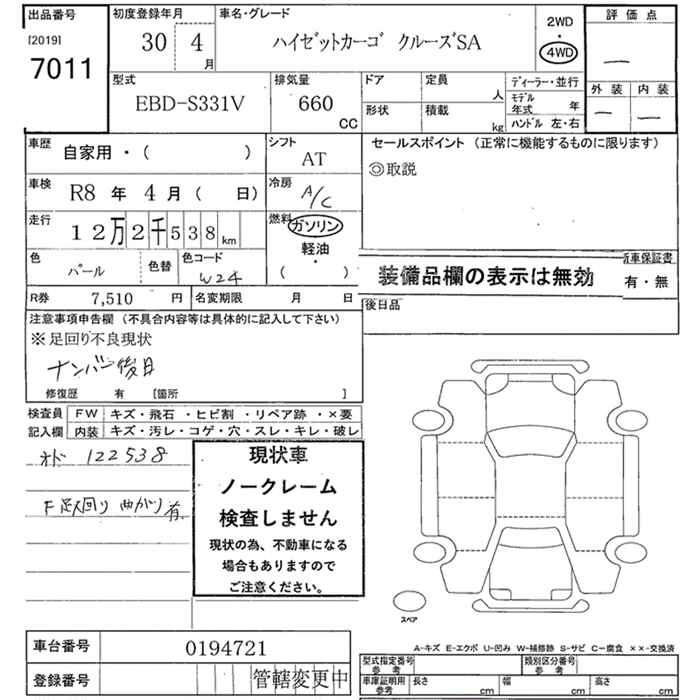 出品番号
[2019]
7011
初度登録年月
30 4
月
車名・グレード
ハイゼットカーゴ クルーズSA
2WD
・
4WD
評価点
—
外装 内装
— —
型式
EBD-S331V
排気量
660
CC
ドア
形状
定員
人
積載
kg
ディーラー・並行
モデル年式 年
ハンドル 左・右
車歴
自家用・( )
シフト
AT
セールスポイント (正常に機能するものに限ります)
◎取説
車検
R8 年 4 月 ( 日)
冷房
A/C
走行
12万2千538km
燃料
ガソリン
軽油
・
( )
色
パール
色替
色コード
W24
装備品欄の表示は無効
新車保証書
有・無
R券
7,510 円
名変期限 月 日
後日品
注意事項申告欄 (不具合内容等は具体的に記入して下さい)
※足回り不良現状
ナンバー後日
修復歴 有 [箇所 ]
検査員記入欄
FW キズ・飛石・ヒビ割・リペア跡・×要
内装 キズ・汚レ・コゲ・穴・スレ・キレ・破レ
オド 122538
F 足回り 曲がり有
現状車
ノークレーム
検査しません
現状の為、不動車になる
場合もありますので
ご注意ください。
スペア
A-キズ E-エクボ U-凹み W-補修跡 S-サビ C-腐食 ××-交換済
車台番号 0194721
登録番号 管轄変更中
型式指定番号 参考
類別区分番号 参考
車庫証明用 参考
長さ cm 幅 cm 高さ cm